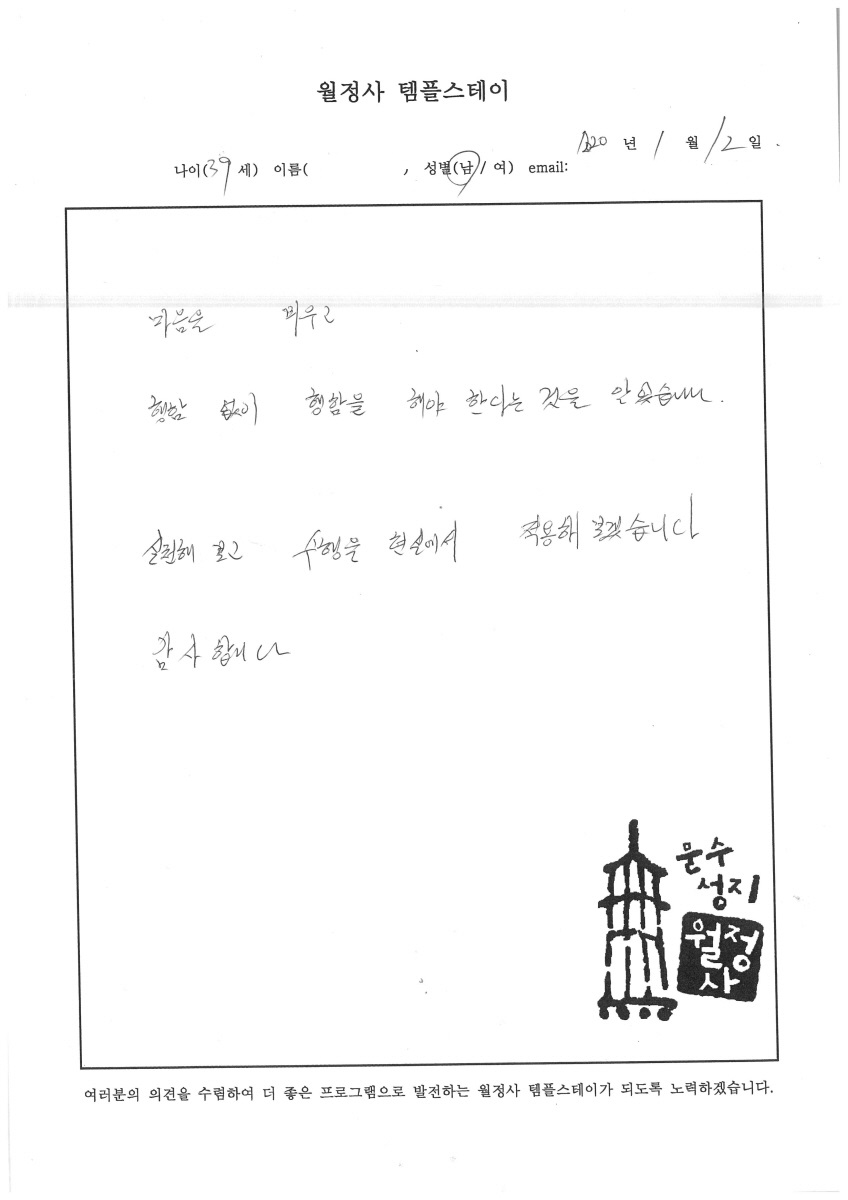 월정사 템플스테이
2020 년 1 월 12 일 .
나이(39 세) 이름( , 성별(남 / 여) email:
마음을 비우고
행함 없이 행함을 해야 한다는 것을 알았습니다.
실천해 보고 수행을 현실에서 적용해 보겠습니다
감사 합니다
문수
성지
월정
사
여러분의 의견을 수렴하여 더 좋은 프로그램으로 발전하는 월정사 템플스테이가 되도록 노력하겠습니다.